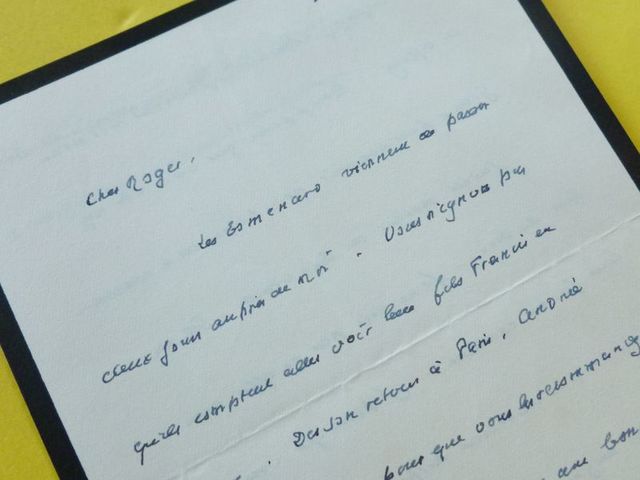 Cher Roger,
Les Esmenard viennent de passer
deux jours auprès de moi. Vous n'ignorez pas
qu'ils comptent aller voir leur fils Francis en
. Dès son retour à Paris, André
pour que vous
un bon